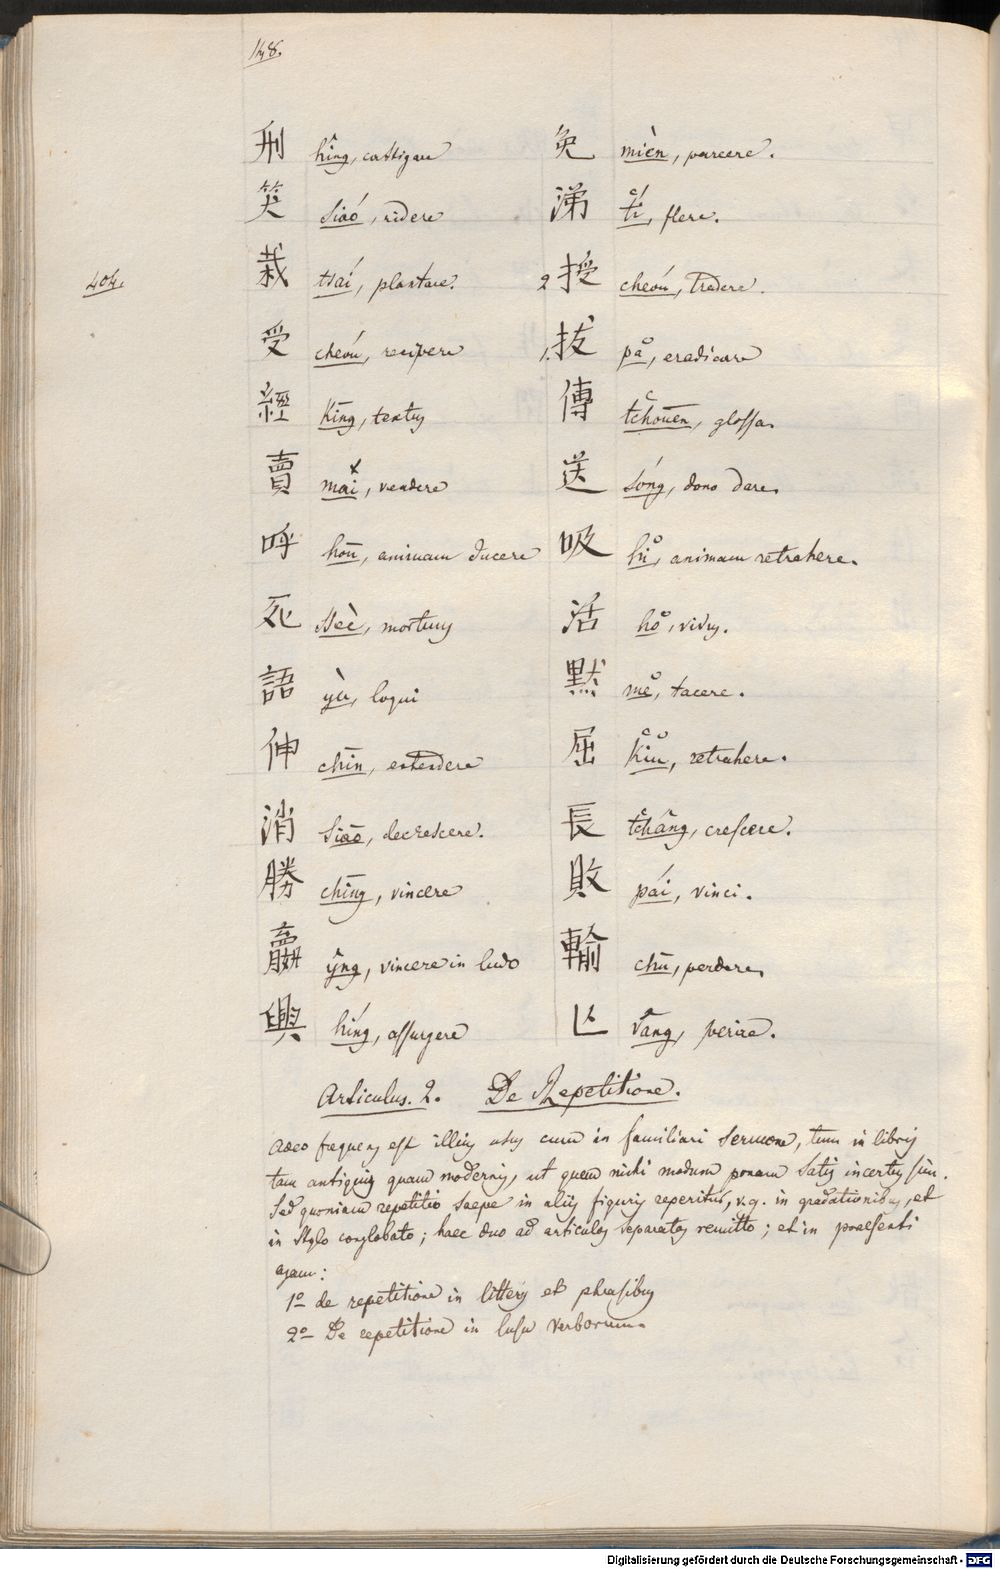 148.
刑 hîng, castigare 免 mièn, parcere.
笑 siaó, ridere 涕 tí, flere.
404. 栽 tsaí, plantare. 2 授 cheóu, tradere.
受 cheóu, recipere 1. 拔 pǎ, eradicare
經 Kīng, textus 傳 tchouên, glossa.
賣 mái, vendere 送 sóng, dono dare.
呼 hoū, animam ducere 吸 hi, animam retrahere.
死 sseè, mortuus 活 ho, vivus.
語 yù, loqui 默 me, tacere.
伸 chīn, extendere 屈 Kiu, retrahere.
消 siāo, decrescere. 長 tchâng, crescere.
勝 chīng, vincere 敗 pái, vinci.
贏 ŷng, vincere in ludo 輸 chū, perdere.
興 híng, assurgere 亡 vâng, perire.
Articulus. 2. De Repetitione.
Adeo frequens est illius usus cum in familiari sermone, tum in libris
tam antiquis quam modernis, ut quem nichi modum ponam satis incertus sim.
Sed quoniam repetitio saepe in aliis figuris reperitur, v.g. in gradationibus, et
in stylo conglobato; haec duo ad articulos separatos remitto; et in praesenti
agam:
1º de repetitione in litteris et phrasibus
2º De repetitione in lusu verborum.
Digitalisierung gefördert durch die Deutsche Forschungsgemeinschaft - DFG